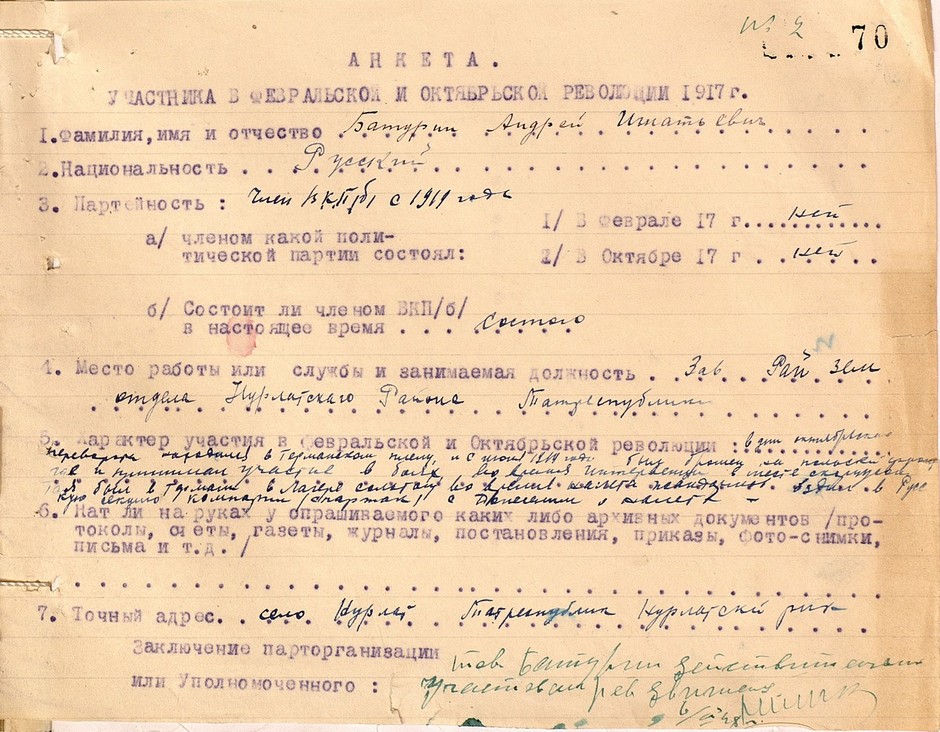 № 2
70
АНКЕТА.
УЧАСТНИКА В ФЕВРАЛЬСКОЙ И ОКТЯБРЬСКОЙ РЕВОЛЮЦИИ 1917г.
1.Фамилия,имя и отчество Батурин Андрей Игнатьевич
2.Национальность . . . Русский
3. Партейность : Член ВКП(б) с 1919 года
1/ В феврале 17 г. . . . ней
а/ членом какой поли-
тической партии состоял:
2/ В Октябре 17 г . . ней
б/ Состоит ли членом ВКП/б/
в настоящее время . . . . состою
4. Место работы или службы и занимаемая должность . Зав Рай Зем
отдела Нурлатскаго Района Татреспублики
5. Характер участия в февральской и Октябрьской революции : в дни октябрьскаго
переворота находился в Германском плену, и с 1919 года был
где и принимал участие в боях во время интервенции
был в Германии в лагере солтау во время налета ездил в Рус
кую секцию компартии спартак с
6. Нат ли на руках у опрашиваемого каких либо архивных документов /про-
токолы, счеты, газеты, журналы, постановления, приказы, фото-снимки,
письма и т.д. /
7. Точный адрес. . село Нурлат Татреспублик Нурлатский рик
Заключение парторганизации
или Уполномоченного :
тов Батурин действительно
участвовал